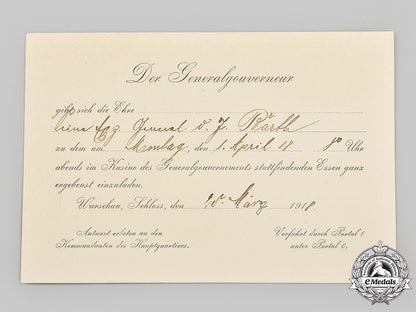 Der Generalgouverneur
gibt sich die Ehre
General d. J. Barth
zu dem am Montag, den 1. April 18 8⁰ Uhr
abends im Kasino des Generalgouvernements stattfindenden Essen ganz
ergebenst einzuladen.
Warschau, Schloss, den 20. März 1918
Antwort erbeten an den
Kommandanten des Hauptquartiers.
Vorfahrt durch Portal 1
unter Portal 6.
eMedals